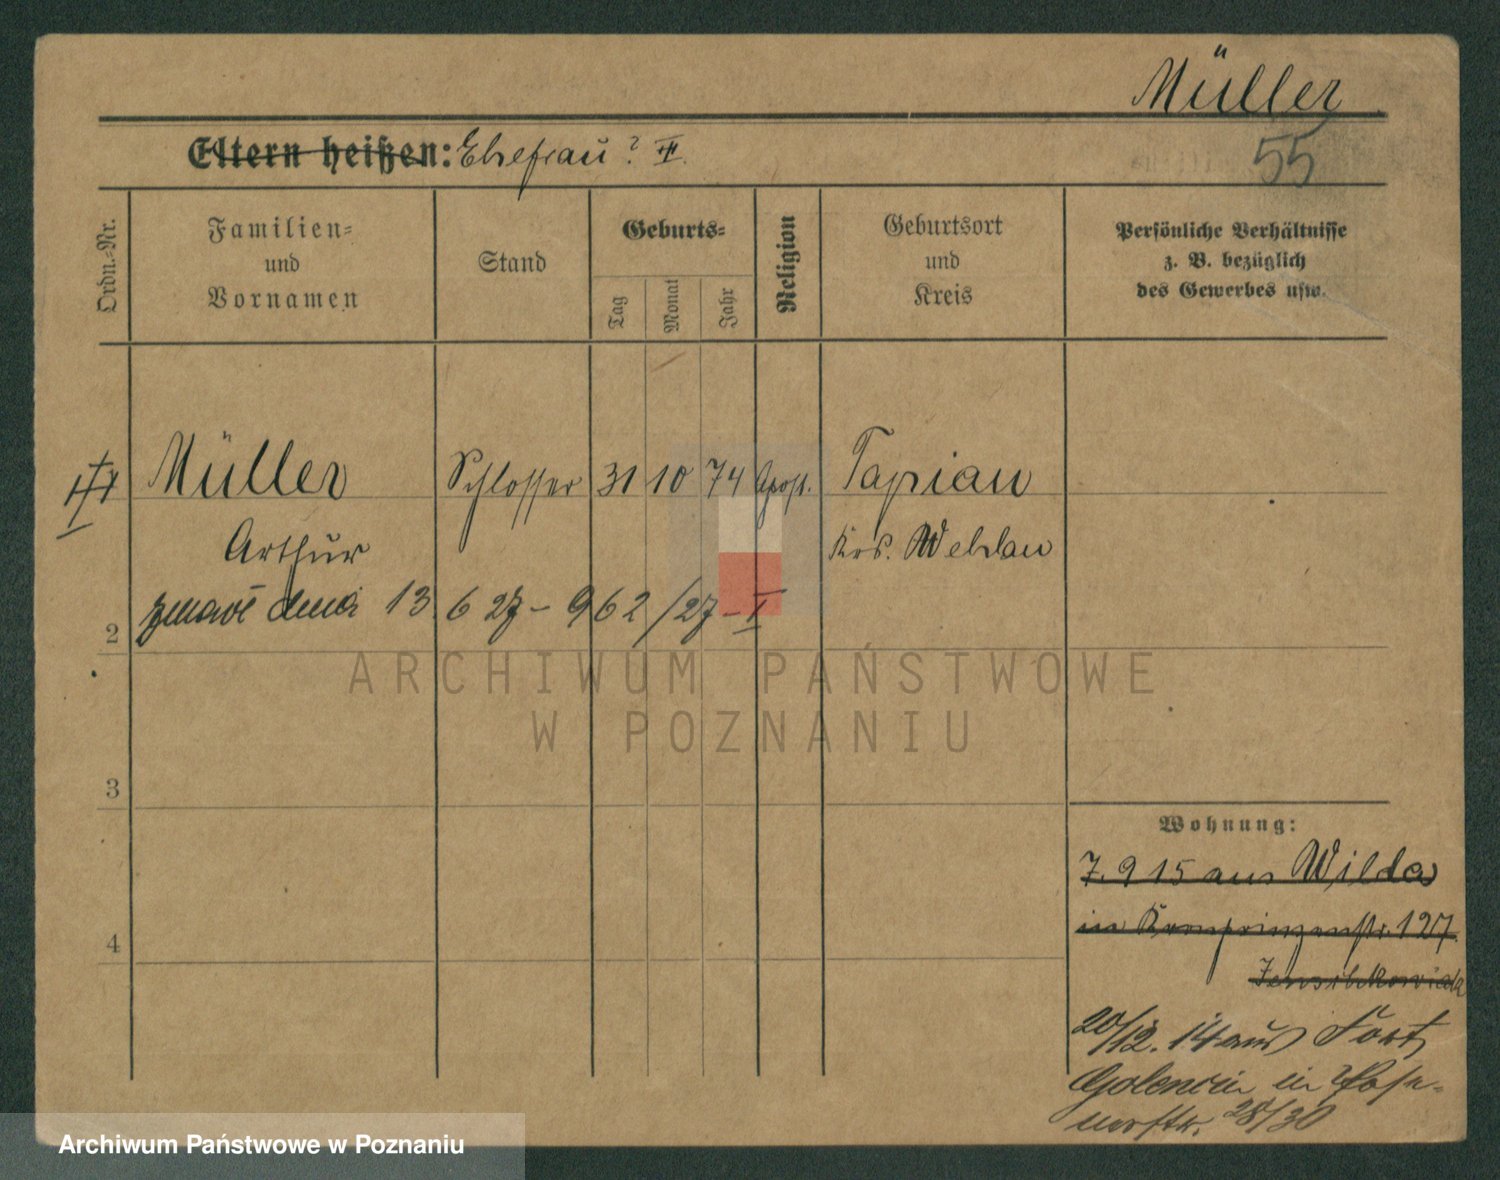 Müller
55
Eltern heißen: Ehefrau? II.
Ordn.-Nr.
Familien-
und
Vornamen
Stand
Geburts-
Tag
Monat
Jahr
Religion
Geburtsort
und
Kreis
Persönliche Verhältnisse
z. B. bezüglich
des Gewerbes usw.
Müller Schlosser 31 10 74 Apost. Tapian
Arthur Krs. Wehlau
13 6 27 - 962/27 - I
2
3
4
ARCHIWUM PAŃSTWOWE
W POZNANIU
Wohnung:
7. 9 15 aus Wilda
in Kronprinzenstr. 127.
20/12. 14 aus Fort
in
28/30
Archiwum Państwowe w Poznaniu